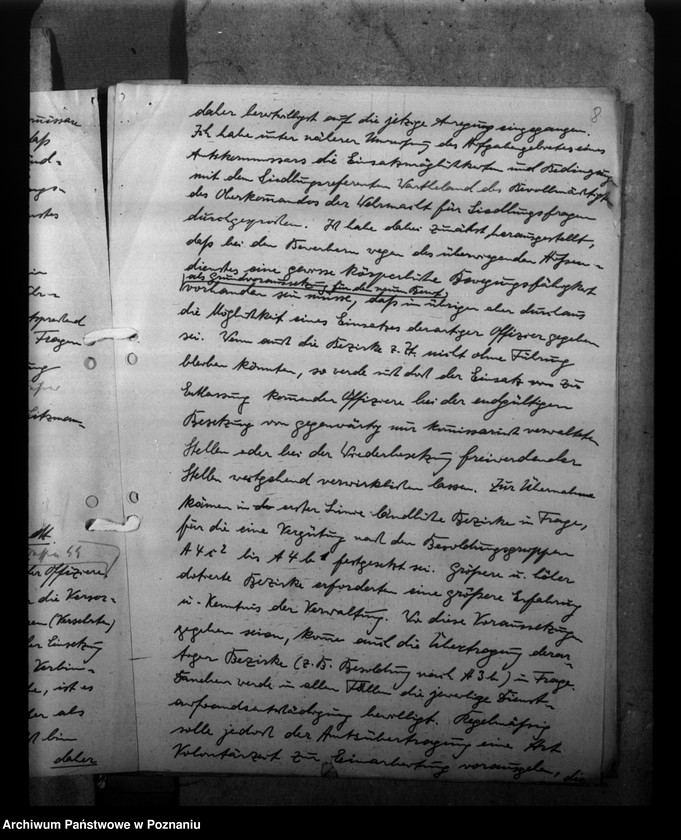 8
daher bereitwilligst auf die jetzige Anregung eingegangen.
Ich habe unter näherer Umreißung des Aufgabengebietes eines
Amtskommissars die Einsatzmöglichkeiten und Bedingungen
mit dem Siedlungsreferenten Wartheland des Bevollmächtigten
des Oberkommandos der Wehrmacht für Siedlungsfragen
durchgesprochen. Ich habe dabei zunächst herausgestellt,
daß bei den Bewerbern wegen des überwiegenden Außen-
dienstes eine gewisse körperliche Bewegungsfähigkeit
als Grundvoraussetzung für den neuen Beruf
vorhanden sein müsse, daß im übrigen aber durchaus
die Möglichkeit eines Einsatzes derartiger Offiziere gegeben
sei. Wenn auch die Bezirke z. Zt. nicht ohne Führung
bleiben könnten, so werde sich doch der Einsatz von zur
Entlassung kommender Offiziere bei der endgültigen
Besetzung von gegenwärtig nur kommissarisch verwalteten
Stellen oder bei der Wiederbesetzung freiwerdender
Stellen weitgehend verwirklichen lassen. Zur Übernahme
kämen in der ersten Linie ländliche Bezirke in Frage,
für die eine Vergütung nach den Besoldungsgruppen
A 4 c 2 bis A 4 b 1 festgesetzt sei. Größere u. höher
dotierte Bezirke erforderten eine größere Erfahrung
u. Kenntnis der Verwaltung. Wo diese Voraussetzungen
gegeben seien, komme auch die Übertragung derar-
tiger Bezirke (z. B. Besoldung nach A 3 b) in Frage.
Daneben werde in allen Fällen die jeweilige Dienst-
aufwandsentschädigung bewilligt. Regelmäßig
solle jedoch der Amtsübertragung eine Art
Volontärzeit zur Einarbeitung vorausgehen, die
daß
Fragen
der Offiziere
die Versor-
(Versehrten)
der Einsetzung
Verbin-
ist es
der als
daher
Archiwum Państwowe w Poznaniu